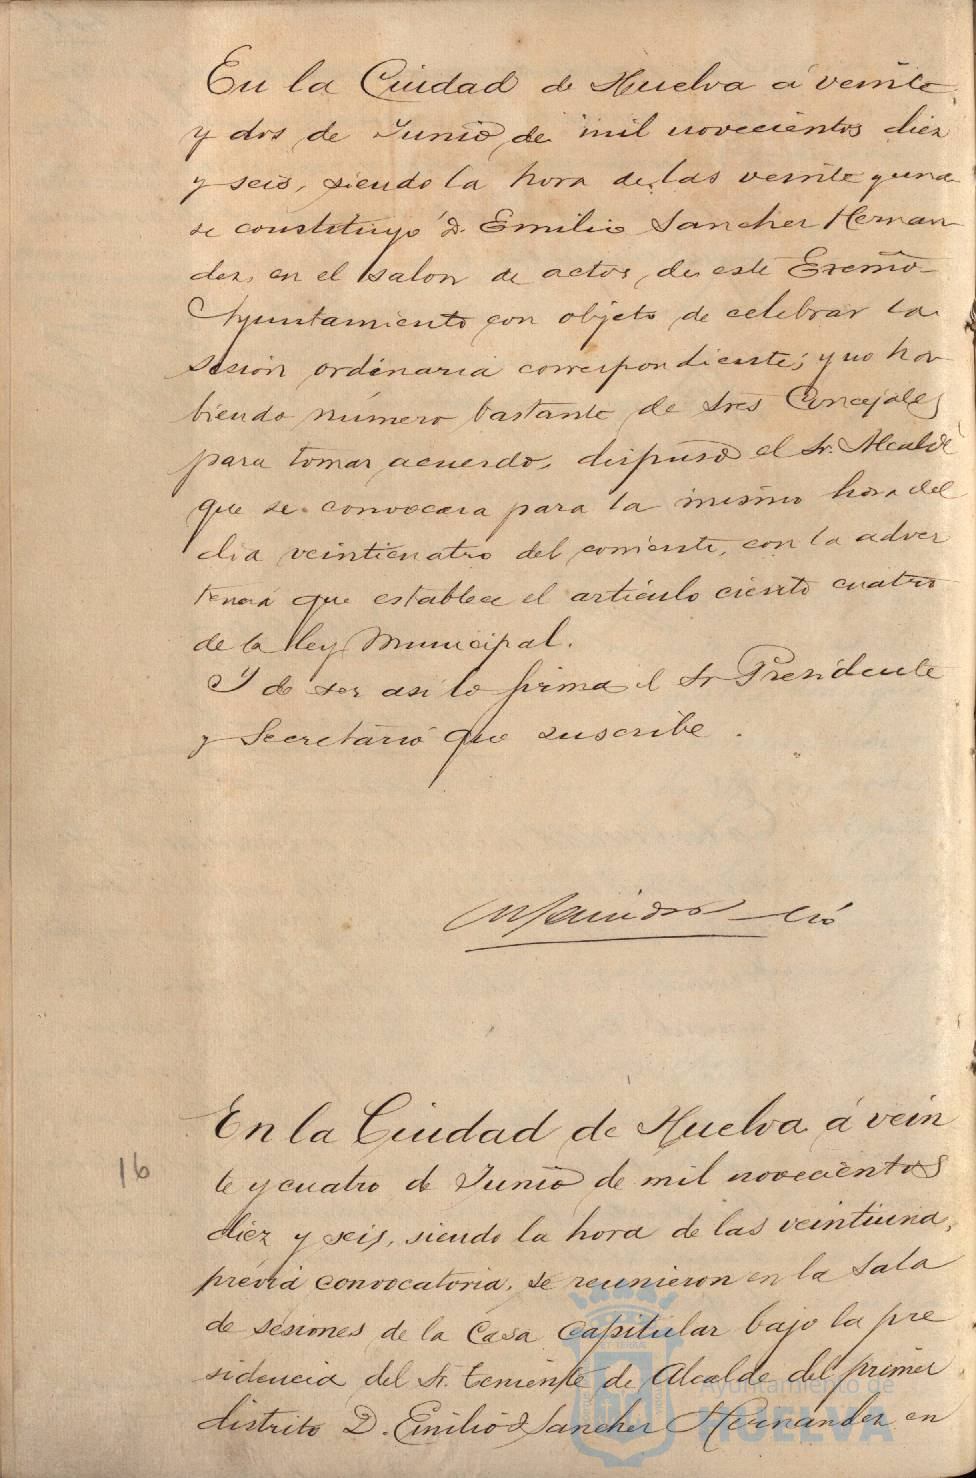 En la Ciudad de Huelva á veinte
y dos de Junio de mil novecientos diez
y seis, siendo la hora de las veinte y una
se constituyó D. Emilio Sanchez Hernan
dez, en el salon de actos de este Excmo
Ayuntamiento con objeto de celebrar la
sesion ordinaria correspondiente; y no ha
biendo número bastante de Sres Concejales
para tomar acuerdo, dispuso el Sr. Alcalde
que se convocara para la misma hora del
dia veinticuatro del corriente, con la adver
tencia que establece el artículo ciento cuatro
de la ley Municipal.
Y de ser asi lo firma el Sr Presidente
y Secretario que suscribe.
En la Ciudad de Huelva á vein
16
te y cuatro de Junio de mil novecientos
diez y seis, siendo la hora de las veintiuna,
prévia convocatoria, se reunieron en la Sala
de sesiones de la Casa Capitular bajo la pre
sidencia del Sr. Teniente de Alcalde del primer
distrito D. Emilio Sanchez Hernandez en
Ayuntamiento de
HUELVA